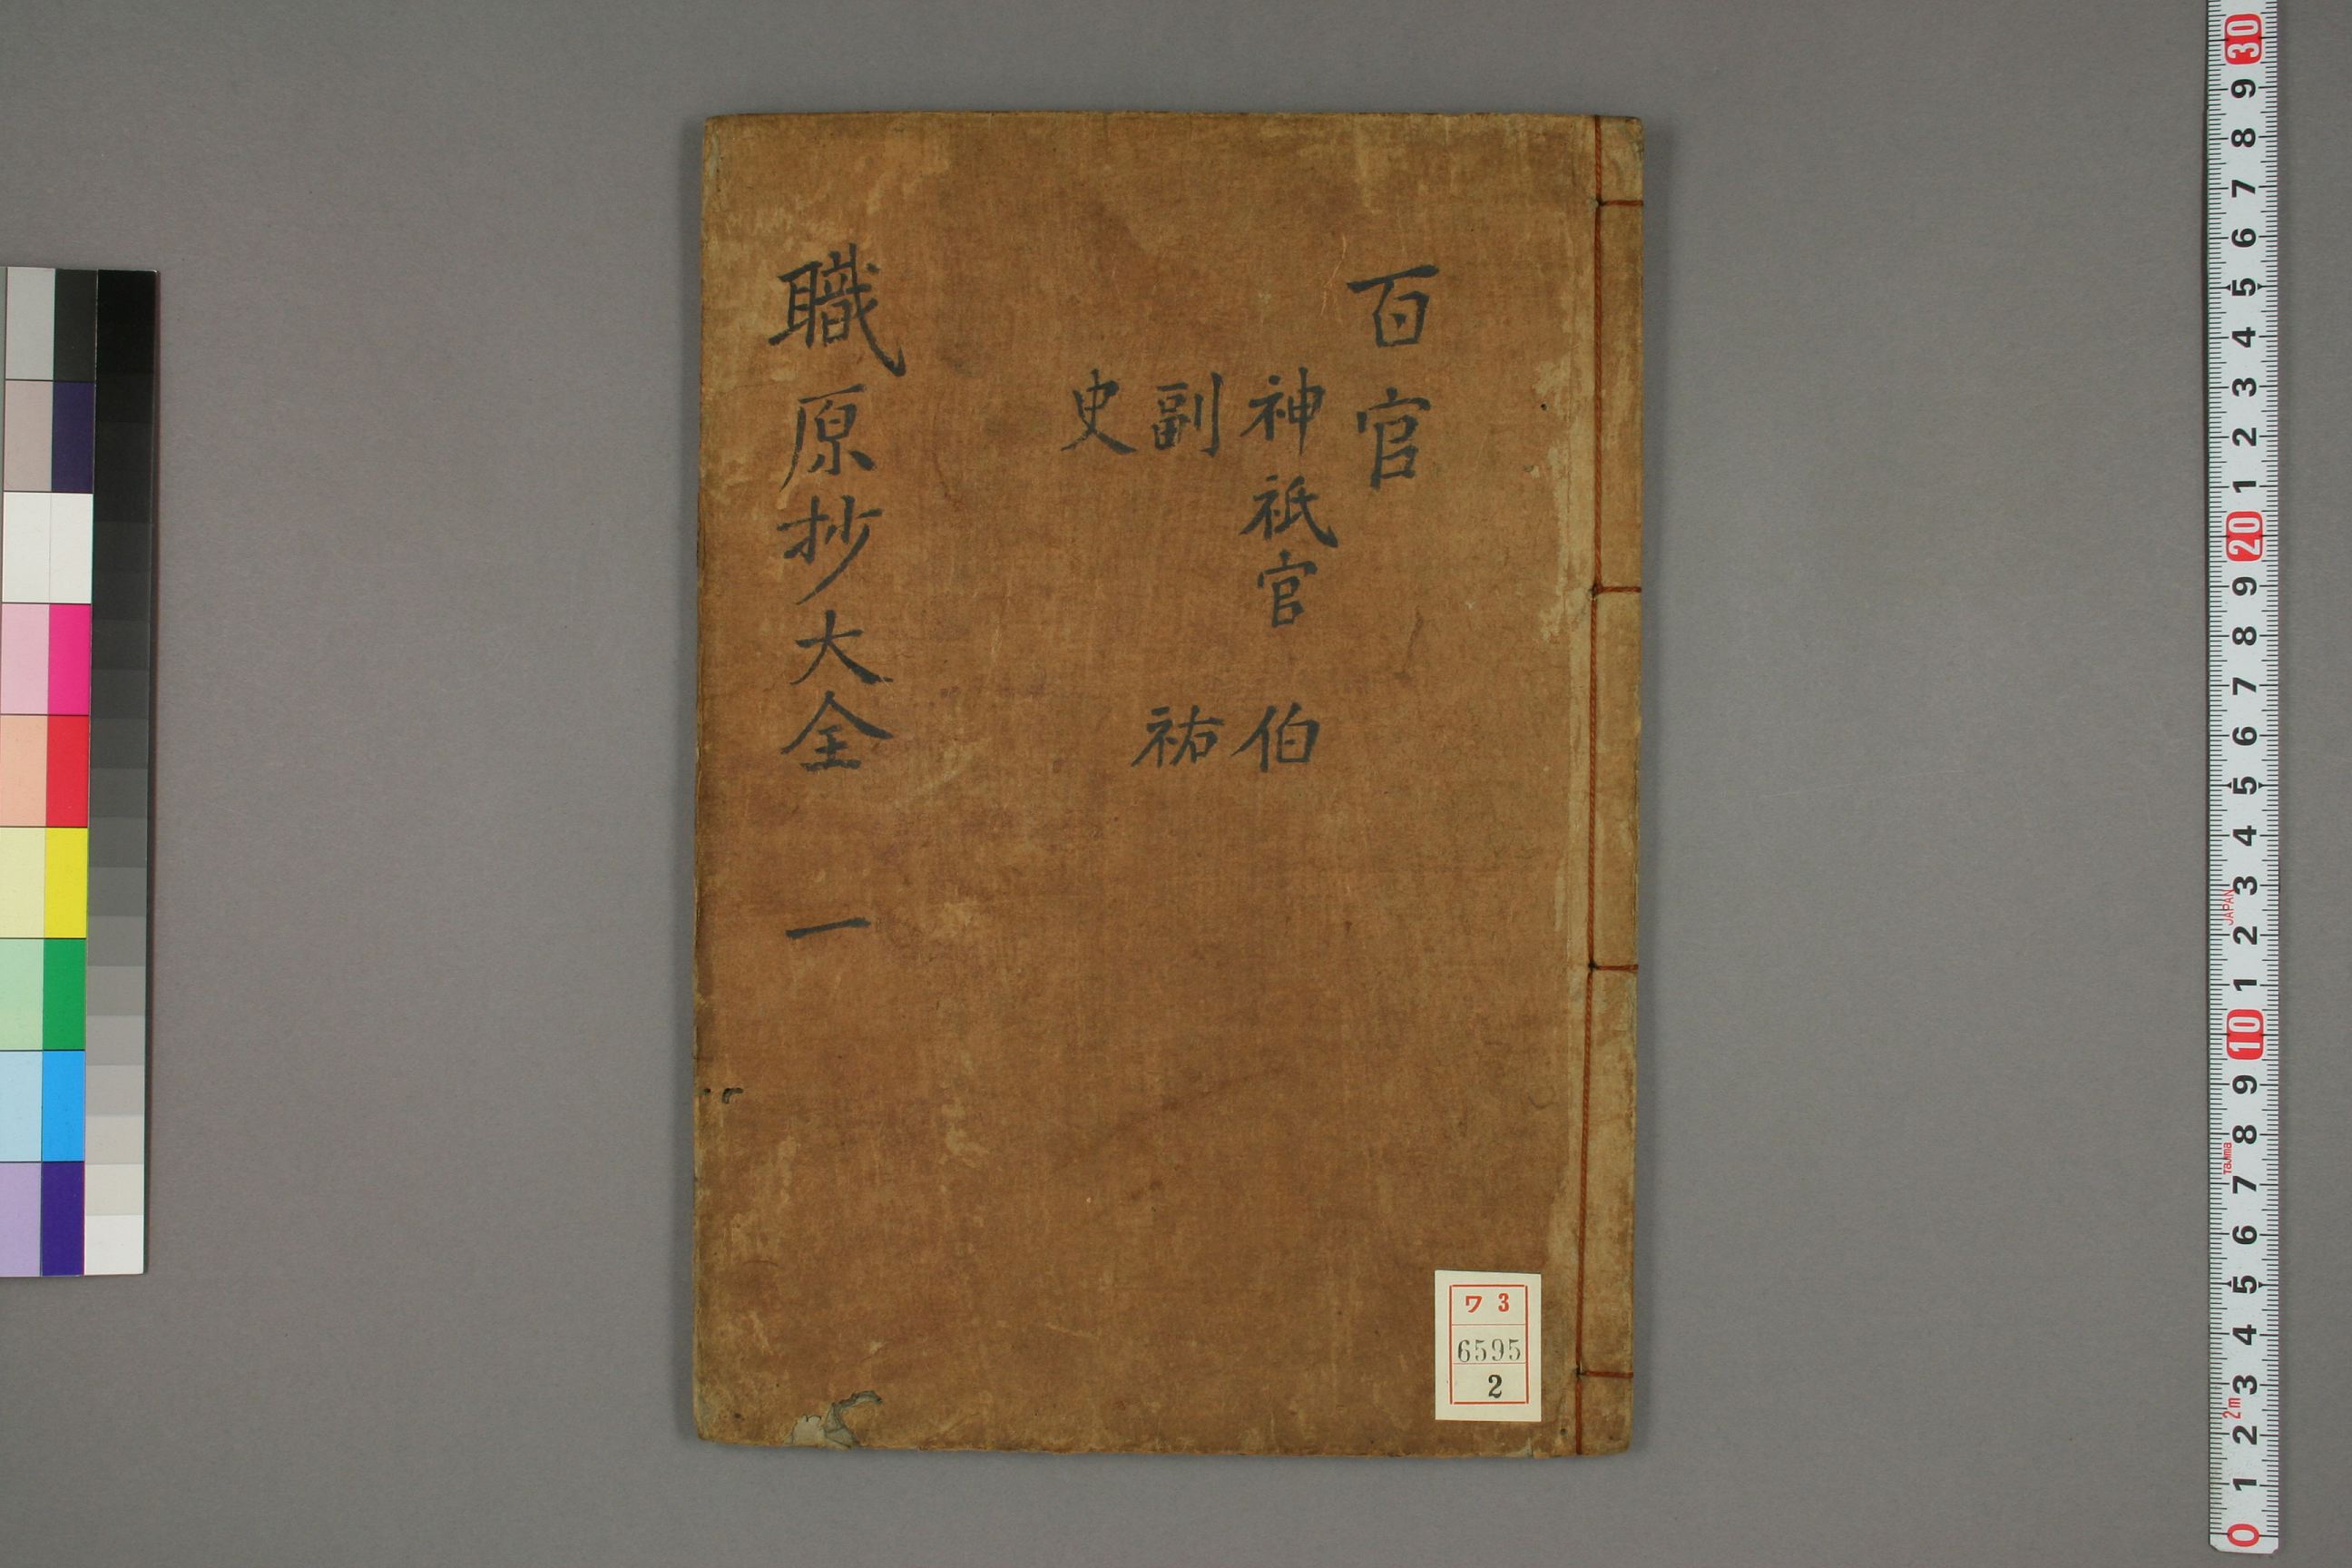 百官
神祇官 伯
副 祐
史
職原抄大全 一
ワ 3
6595
2
30
9
8
7
6
5
4
3
2
1
20
9
8
7
6
5
4
3
JAPAN
2
1
10
9
8
Tajima
7
6
5
4
3
2m
2
1
0